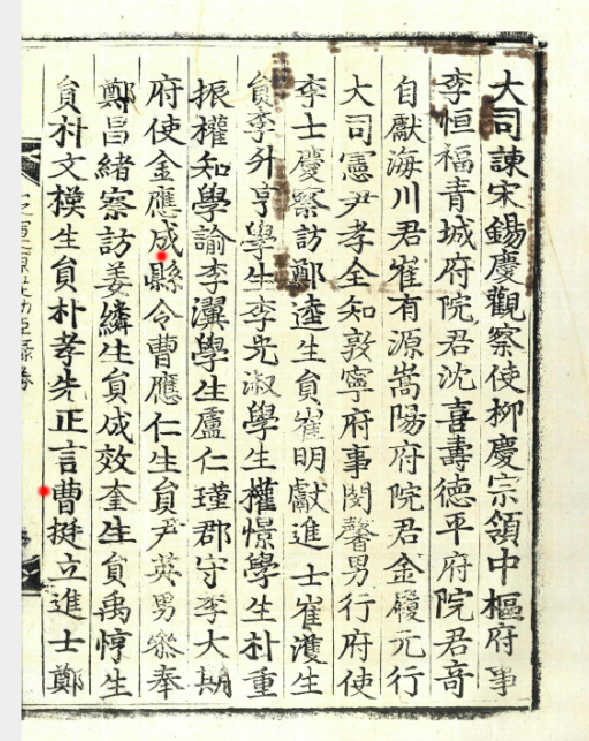 大司諫宋錫慶觀察使柳慶宗領中樞府事
李恒福青城府院君沈喜壽德平府院君奇
自獻海川君崔有源嵩陽府院君金履元行
大司憲尹孝全知敦寧府事閔馨男行府使
李士慶察訪鄭逵生員崔明獻進士崔濩生
員李升亨學生李光淑學生權憬學生朴重
振權知學諭李瀷學生盧仁瑾郡守李大期
府使金應成縣令曹應仁生員尹英男參奉
鄭昌緖察訪姜繗生員成效奎生員禹惇生
員朴文㰁生員朴孝先正言曹挺立進士鄭